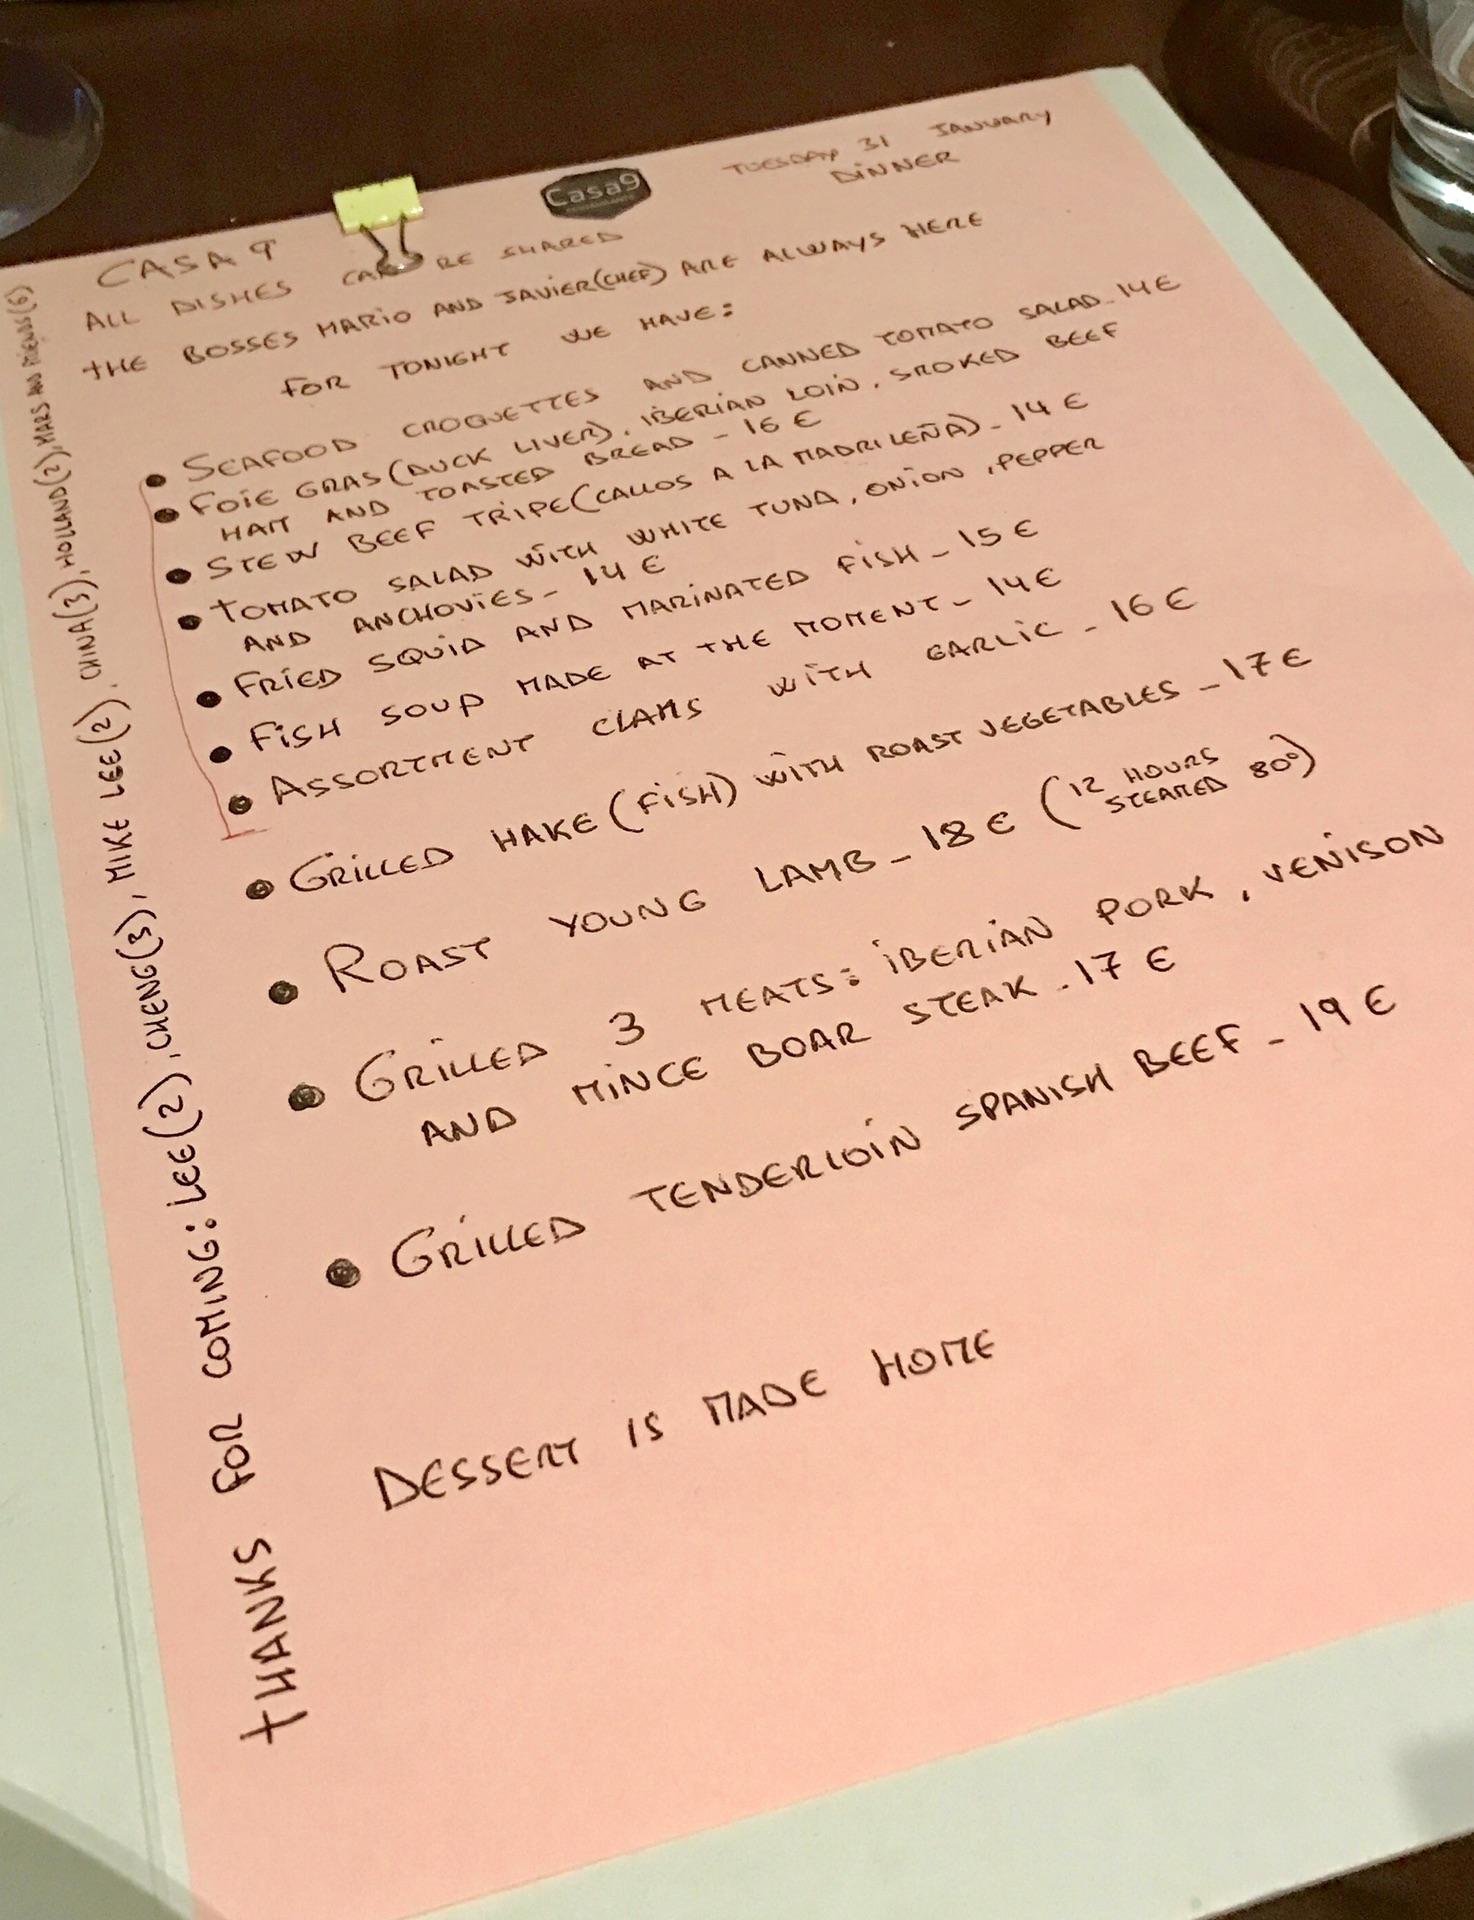 Casa9
TUESDAY 31 JANUARY
DINNER
CASA 9
ALL DISHES CAN BE SHARED
THE BOSSES MARIO AND JAVIER(CHEF) ARE ALWAYS HERE
FOR TONIGHT WE HAVE:
• SEAFOOD CROQUETTES AND CANNED TOMATO SALAD_14€
• FOIE GRAS(DUCK LIVER), IBERIAN LOIN, SMOKED BEEF
HAM AND TOASTED BREAD - 16 €
• STEW BEEF TRIPE(CALLOS A LA MADRILEÑA)_ 14 €
• TOMATO SALAD WITH WHITE TUNA, ONION, PEPPER
AND ANCHOVIES_ 14 €
• FRIED SQUID AND MARINATED FISH_ 15 €
• FISH SOUP MADE AT THE MOMENT_ 14€
• ASSORTMENT CLAMS WITH GARLIC_16 €
• GRILLED HAKE(FISH) WITH ROAST VEGETABLES_17€
• ROAST YOUNG LAMB_18€ (12 HOURS
STEAMED 80°)
• GRILLED 3 MEATS: IBERIAN PORK, VENISON
AND MINCE BOAR STEAK_17 €
• GRILLED TENDERLOIN SPANISH BEEF_19 €
DESSERT IS MADE HOME
THANKS FOR COMING: LEE(2), CHENG(3), MIKE LEE(2), CHINA(3), HOLLAND(2), MARS AND FRIENDS(6)